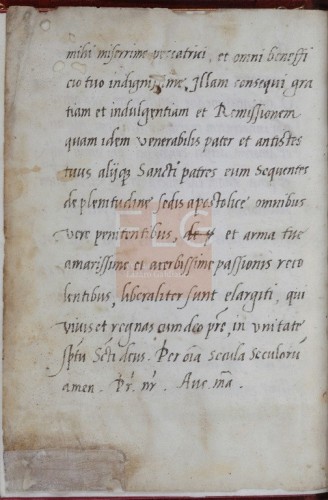 mihi miserrime peccatrici, et omni beneffi
cio tuo indignissime, Illam consequi gra
tiam et indulgentiam et Remissionem
quam idem venerabilis pater et antistes
tuus alijque Sancti patres eum Sequentes
de plenitudine sedis apostolice omnibus
vere penitentibus, et arma tue
amarissime et acerbissime passionis reco
lentibus, liberaliter sunt elargiti, qui
vivis et regnas cum deo pre, in unitate
spũ Scti deus. Per oĩa secula seculorũ
amen. Pr. nr. Ave. mã.